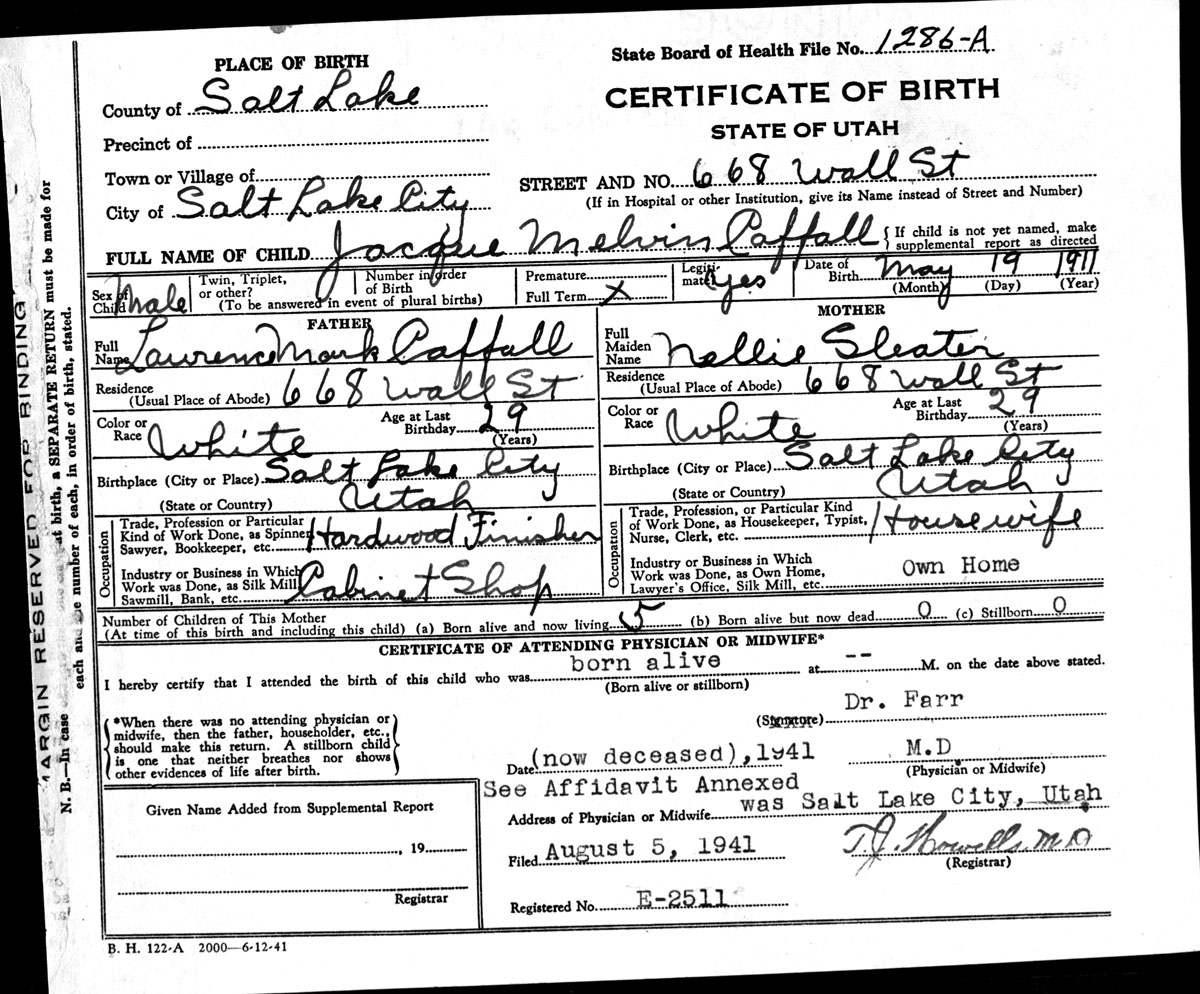 PLACE OF BIRTH
County of Salt Lake
Precinct of
Town or Village of
City of Salt Lake City
State Board of Health File No. 1286-A
CERTIFICATE OF BIRTH
STATE OF UTAH
STREET AND NO. 668 Wall St
(If in Hospital or other Institution, give its Name instead of Street and Number)
FULL NAME OF CHILD Jacque Melvin Paffall { If child is not yet named, make
supplemental report as directed
Sex of Child Male
Twin, Triplet, or other?
Number in order of Birth
(To be answered in event of plural births)
Premature
Full Term X
Legitimate Yes
Date of Birth May 19 1911
(Month) (Day) (Year)
FATHER
Full Name Lawrence Mark Paffall
Residence 668 Wall St
(Usual Place of Abode)
Color or Race White
Age at Last Birthday 29
(Years)
Birthplace (City or Place) Salt Lake City
(State or Country) Utah
Occupation
Trade, Profession or Particular
Kind of Work Done, as Spinner
Sawyer, Bookkeeper, etc. Hardwood Finisher
Industry or Business in Which
Work was Done, as Silk Mill
Sawmill, Bank, etc. Cabinet Shop
MOTHER
Full Maiden Name Nellie Sleater
Residence 668 Wall St
(Usual Place of Abode)
Color or Race White
Age at Last Birthday 29
(Years)
Birthplace (City or Place) Salt Lake City
(State or Country) Utah
Occupation
Trade, Profession, or Particular Kind
of Work Done, as Housekeeper, Typist,
Nurse, Clerk, etc. Housewife
Industry or Business in Which
Work was Done, as Own Home,
Lawyer's Office, Silk Mill, etc. Own Home
Number of Children of This Mother
(At time of this birth and including this child) (a) Born alive and now living 5 (b) Born alive but now dead 0 (c) Stillborn 0
CERTIFICATE OF ATTENDING PHYSICIAN OR MIDWIFE*
I hereby certify that I attended the birth of this child who was born alive at -- M. on the date above stated.
(Born alive or stillborn)
*When there was no attending physician or
midwife, then the father, householder, etc.,
should make this return. A stillborn child
is one that neither breathes nor shows
other evidences of life after birth.
Dr. Farr
(Signature)
Date (now deceased), 1941 M.D
(Physician or Midwife)
See Affidavit Annexed
Address of Physician or Midwife was Salt Lake City, Utah
Filed August 5, 1941 T.J. Howells M.D
(Registrar)
Registered No. E-2511
Given Name Added from Supplemental Report
, 19
Registrar
B. H. 122-A 2000—6-12-41
MARGIN RESERVED FOR BINDING
N. B.—In case at birth, a SEPARATE RETURN must be made for
each and the number of each, in order of birth, stated.